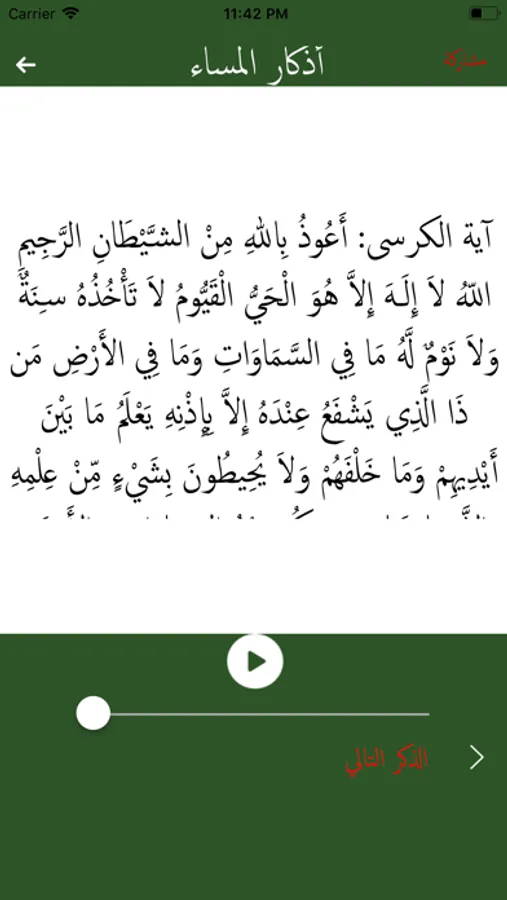 Carrier 11:42 PM
آذكار المساء
مشاركة
آية الكرسى: أَعُوذُ بِاللهِ مِنْ الشَّيْطَانِ الرَّجِيمِ
اللّهُ لاَ إِلَـهَ إِلاَّ هُوَ الْحَيُّ الْقَيُّومُ لاَ تَأْخُذُهُ سِنَةٌ
وَلاَ نَوْمٌ لَّهُ مَا فِي السَّمَاوَاتِ وَمَا فِي الأَرْضِ مَن
ذَا الَّذِي يَشْفَعُ عِنْدَهُ إِلاَّ بِإِذْنِهِ يَعْلَمُ مَا بَيْنَ
أَيْدِيهِمْ وَمَا خَلْفَهُمْ وَلاَ يُحِيطُونَ بِشَيْءٍ مِّنْ عِلْمِهِ
الذكر التالي